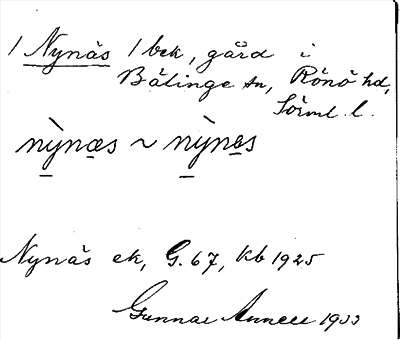 1 Nynäs 1 bek, gård i
Bälinge sn, Rönö hd,
Sörml. l.
nỳnæs ~ nỳnes
Nynäs ek, G. 67, Kb 1925
Gunnar 1933